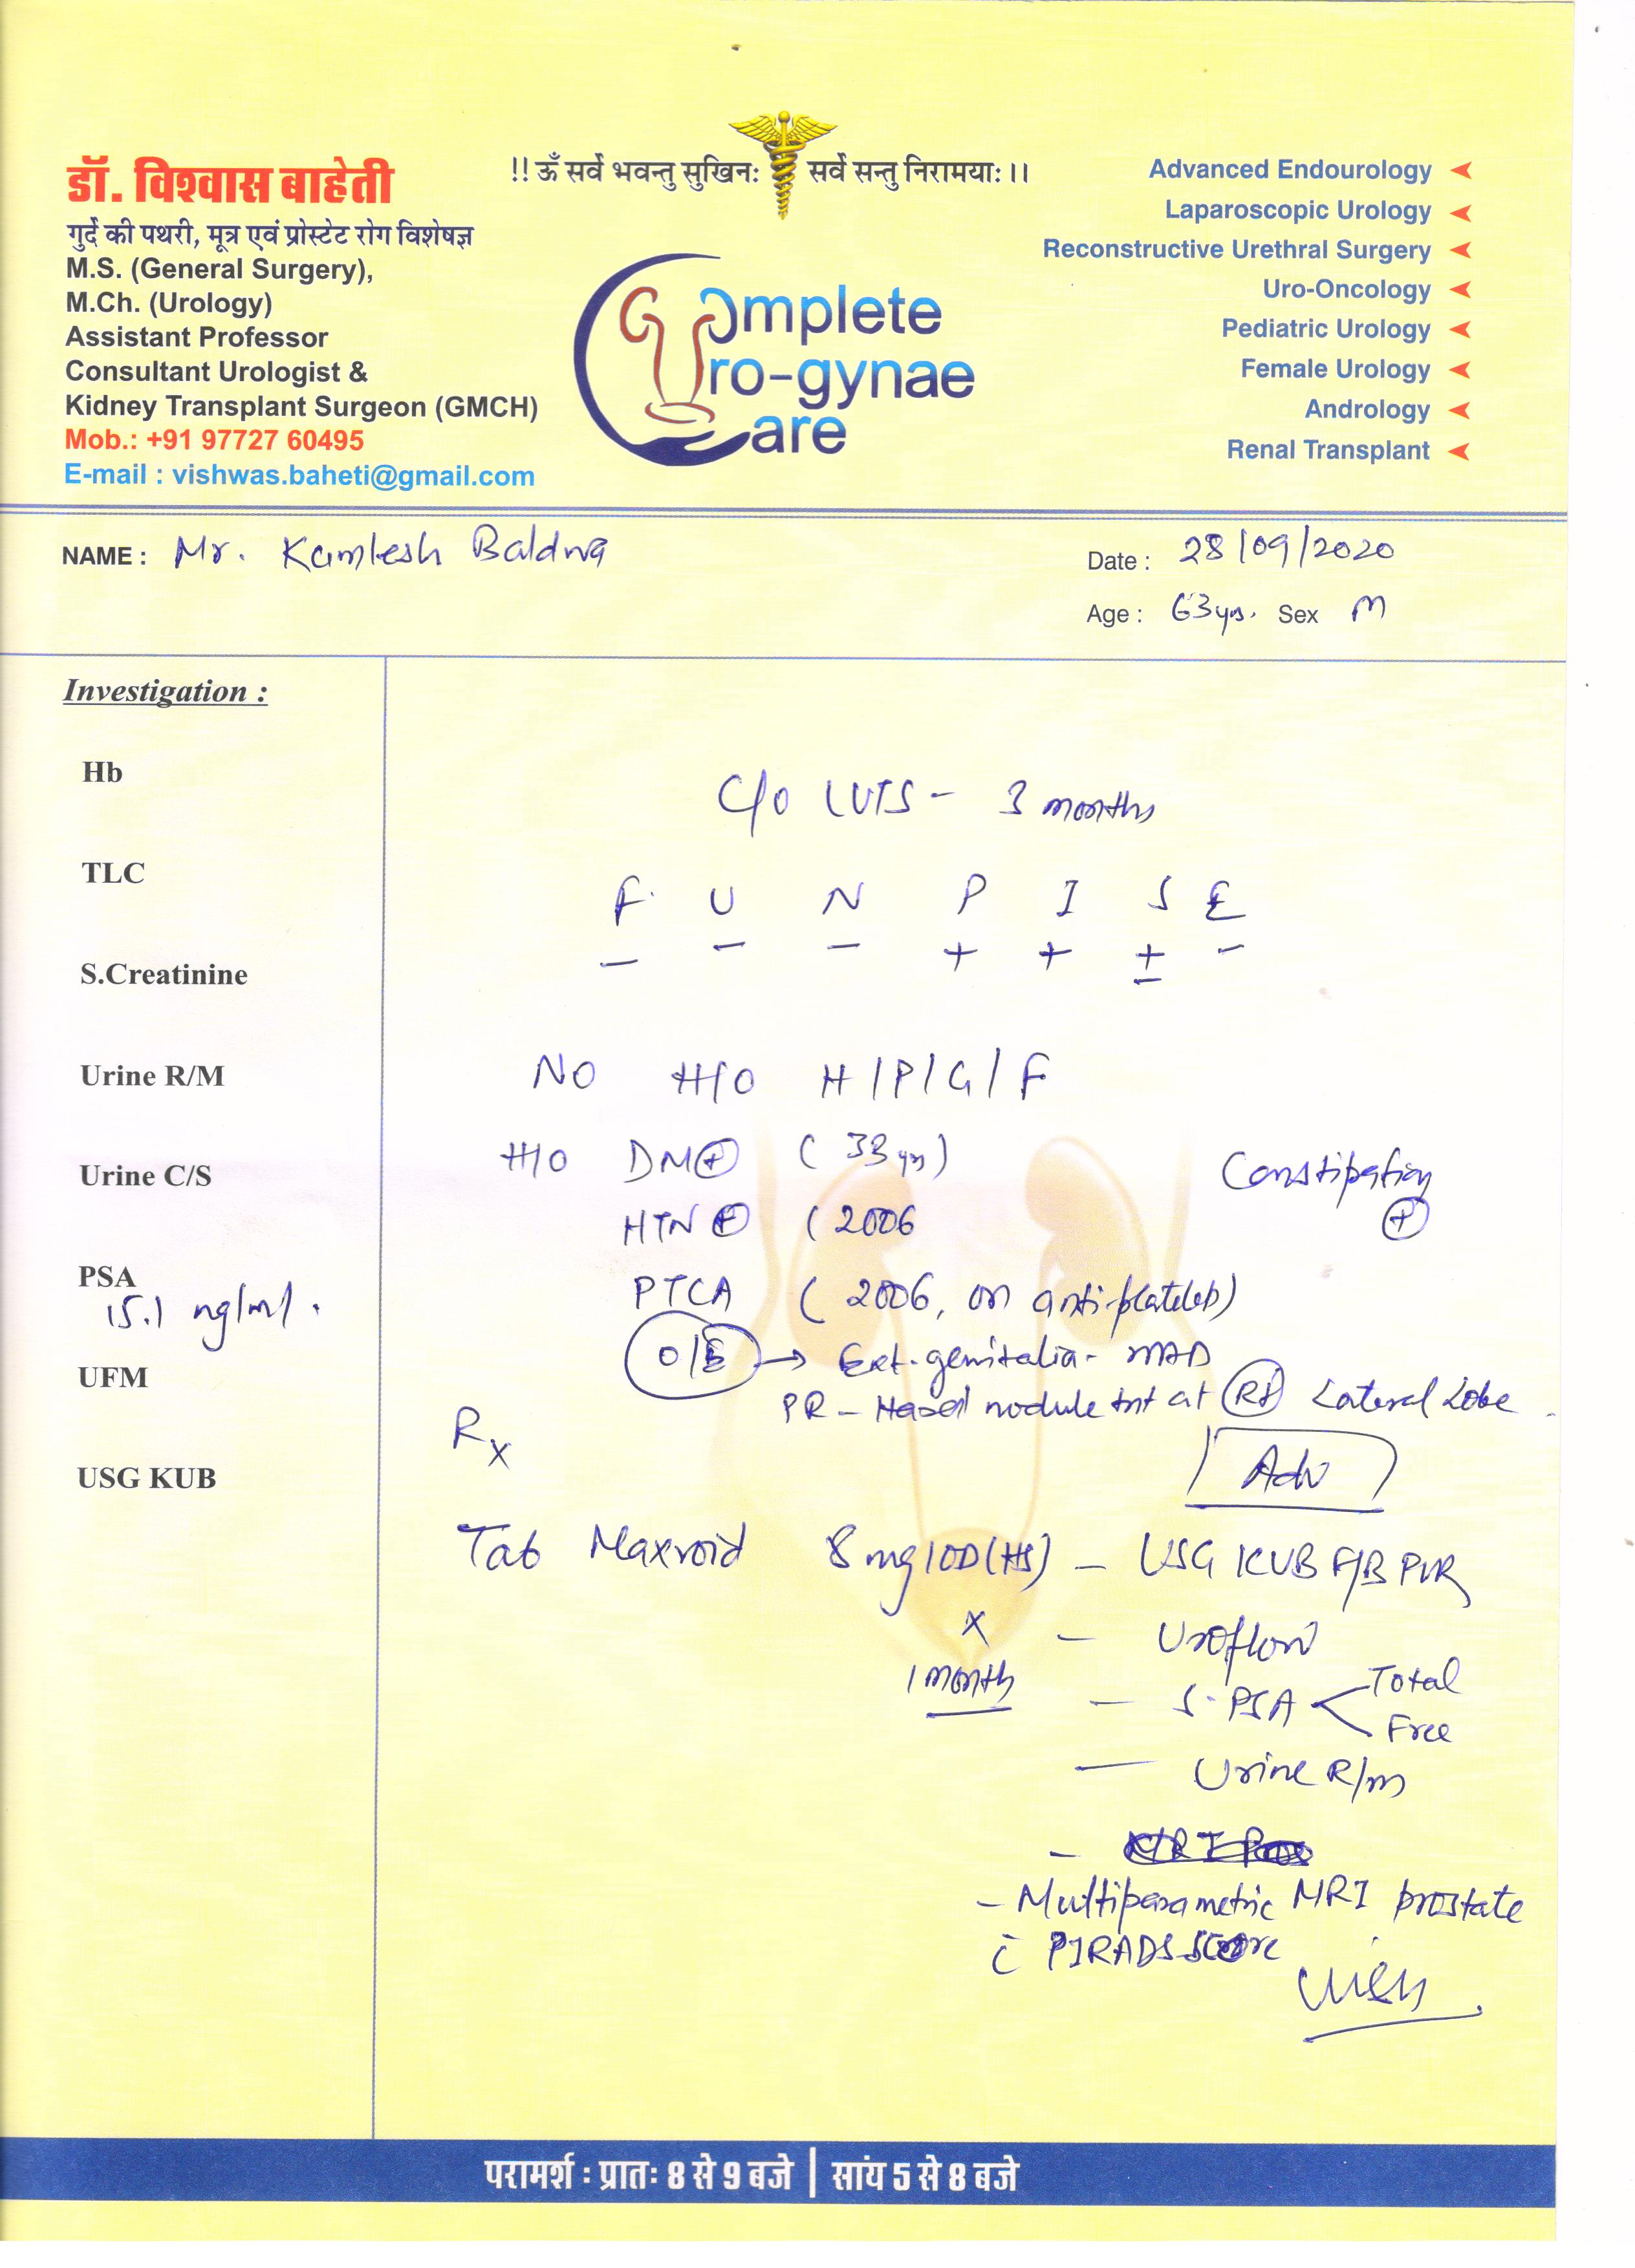 डॉ. विश्वास बाहेती
गुर्दे की पथरी, मूत्र एवं प्रोस्टेट रोग विशेषज्ञ
M.S. (General Surgery),
M.Ch. (Urology)
Assistant Professor
Consultant Urologist &
Kidney Transplant Surgeon (GMCH)
Mob.: +91 97727 60495
E-mail : vishwas.baheti@gmail.com
!! ॐ सर्वे भवन्तु सुखिनः सर्वे सन्तु निरामयाः ।।
Complete
Uro-gynae
Care
Advanced Endourology
Laparoscopic Urology
Reconstructive Urethral Surgery
Uro-Oncology
Pediatric Urology
Female Urology
Andrology
Renal Transplant
NAME : Mr. Kamlesh Baldwa
Date : 28/09/2020
Age : 63 yrs. Sex M
Investigation :
Hb
TLC
S.Creatinine
Urine R/M
Urine C/S
PSA
15.1 ng/ml.
UFM
USG KUB
C/o LUTS - 3 months
F U N P I S E
- - - + + ± -
NO H/O H/P/G/F
H/O DM ⊕ (33 yrs)
HTN ⊕ (2006
Constipation
⊕
PTCA (2006, on antiplatelets)
O/E → Ext. genitalia - NAD
PR - Hard nodule at Rt Lateral Lobe
Rx
Adv
Tab Maxvoid 8 mg 1OD (HS)
X
1 month
- USG KUB F/B PVR
- Uroflow
- S. PSA < Total
Free
- Urine R/m
- Multiparametric MRI prostate
c̄ PIRADS score
परामर्श : प्रातः 8 से 9 बजे | सांय 5 से 8 बजे